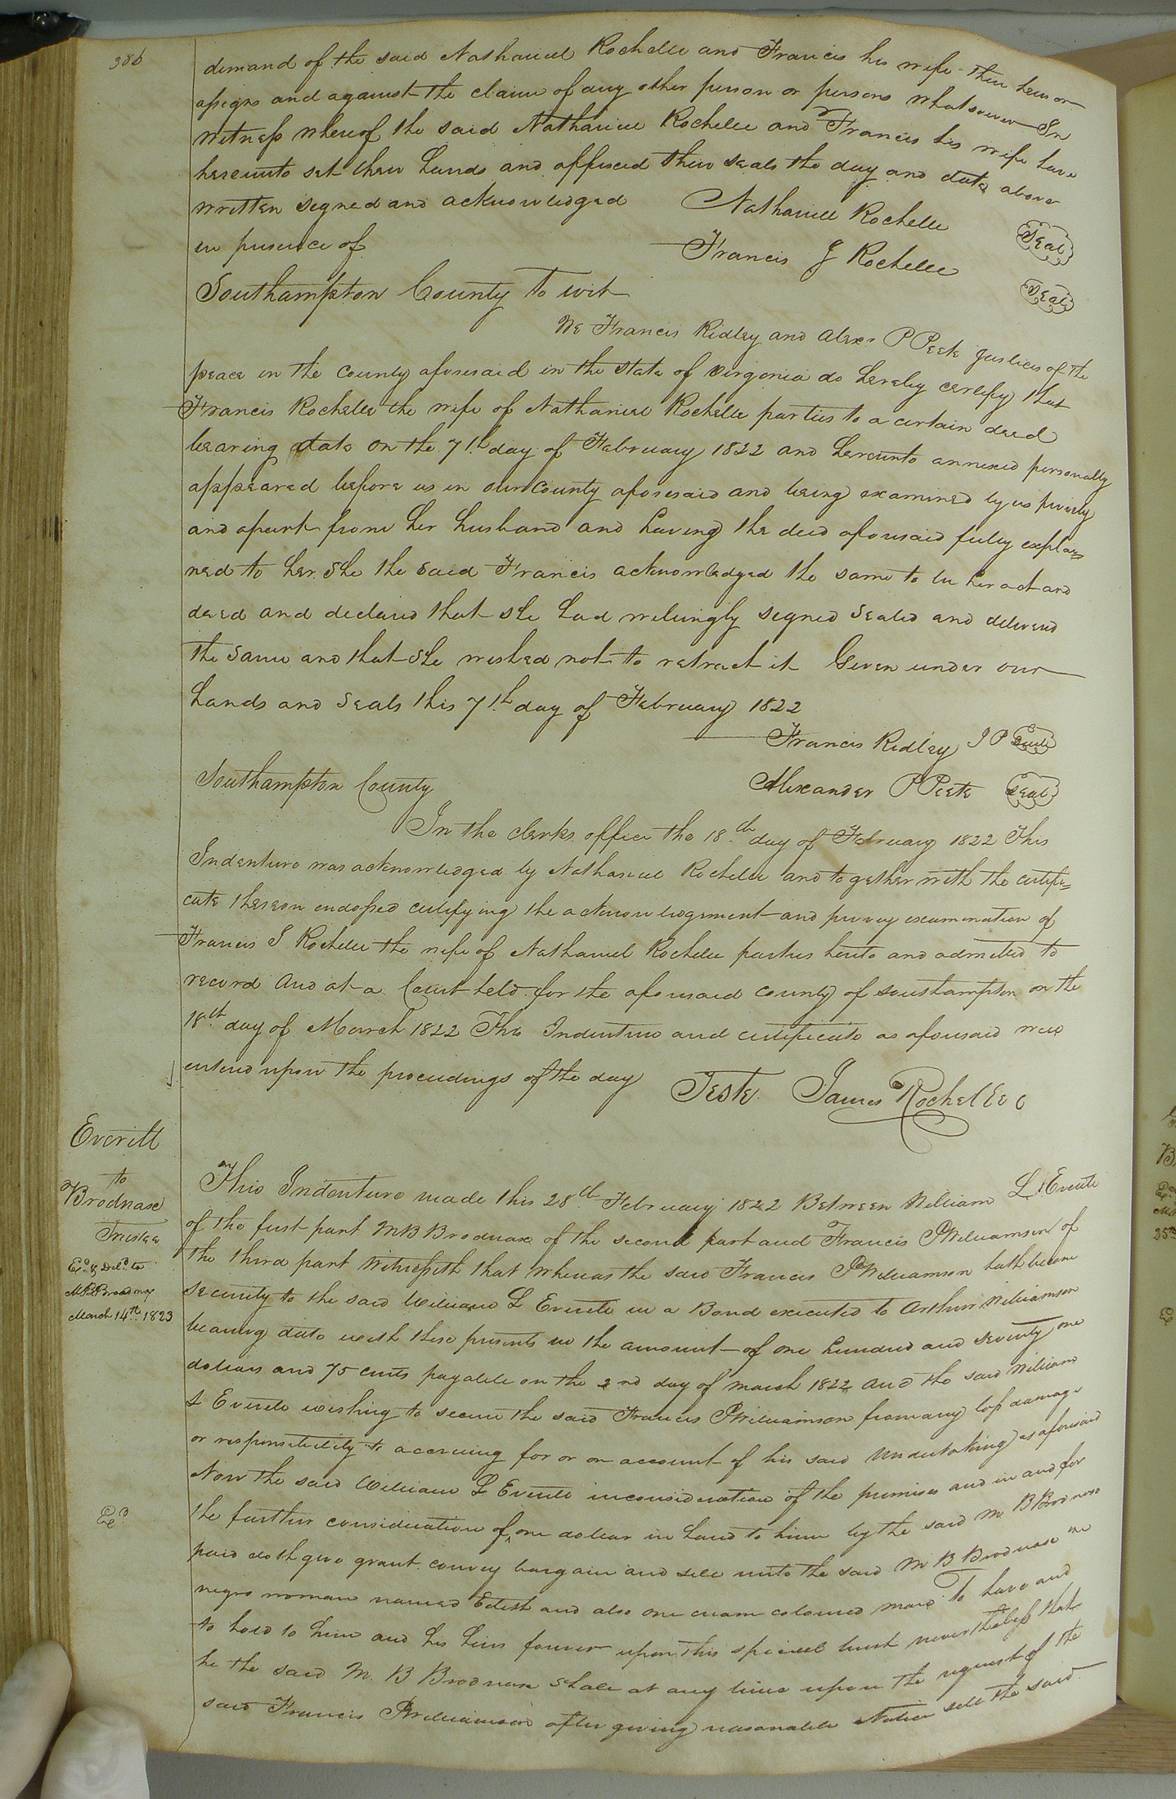 386
demand of the said Nathaniel Rochelle and Francis his wife their heirs or
assigns and against the claim of any other person or persons whatsoever In
Witness Whereof the said Nathaniel Rochelle and Francis his wife have
hereunto set their hands and affixed their seals the day and date above
written signed and acknowledged Nathaniel Rochelle Seal
in presence of Francis J Rochelle Seal
Southampton County To wit
We Francis Ridley and Alexr P Peete Justices of the
peace in the County aforesaid in the State of Virginia do hereby certify that
Francis Rochelle the wife of Nathaniel Rochelle parties to a certain deed
bearing date on the 7th day of February 1822 and hereunto annexed personally
appeared before us in our County aforesaid and being examined by us privily
and apart from her husband and having the deed aforesaid fully explai=
ned to her She the said Francis acknowledged the same to be her act and
deed and declared that she had willingly signed sealed and delivered
the same and that she wished not to retract it Given under our
hands and seals this 7th day of February 1822
Francis Ridley J P Seal
Southampton County Alexander P Peete Seal
In the clerks office the 18th day of February 1822 This
Indenture was acknowledged by Nathaniel Rochelle and together with the certifi=
cate thereon endorsed certifying the acknowledgment and privy examination of
Francis J Rochelle the wife of Nathaniel Rochelle parties hereto and admitted to
record And at a Court held for the aforesaid County of Southampton on the
18th day of March 1822 This Indenture and certificate as aforesaid was
entered upon the proceedings of the day Teste James Rochelle C
Everitt
to
Brodnax
Trustee
Exd & Deld to
M B Brodnax
March 14th 1823
This Indenture made this 28th February 1822 Between William L Everitt
of the first part M B Brodnax of the second part and Francis P Williamson of
the third part Witnesseth that whereas the said Francis P Williamson hath become
security to the said William L Everitt in a Bond executed to Arthur Williamson
bearing date with these presents in the amount of one hundred and seventy one
dollars and 75 cents payable on the 2nd day of March 1822 and the said William
L Everitt wishing to secure the said Francis P Williamson from any loss damage
or responsibility to accruing for or on account of his said Undertaking as aforesaid
Now the said William L Everitt in consideration of the premises and in and for
the further consideration of one dollar in hand to him by the said M B Brodnax
paid doth give grant convey bargain and sell unto the said M B Brodnax one
negro woman named Edith and also one cream coloured mare To have and
to hold to him and his heirs forever upon this special trust nevertheless that
he the said M B Brodnax shall at any time upon the request of the
said Francis P Williamson after giving reasonable Notice sell the said
Exd